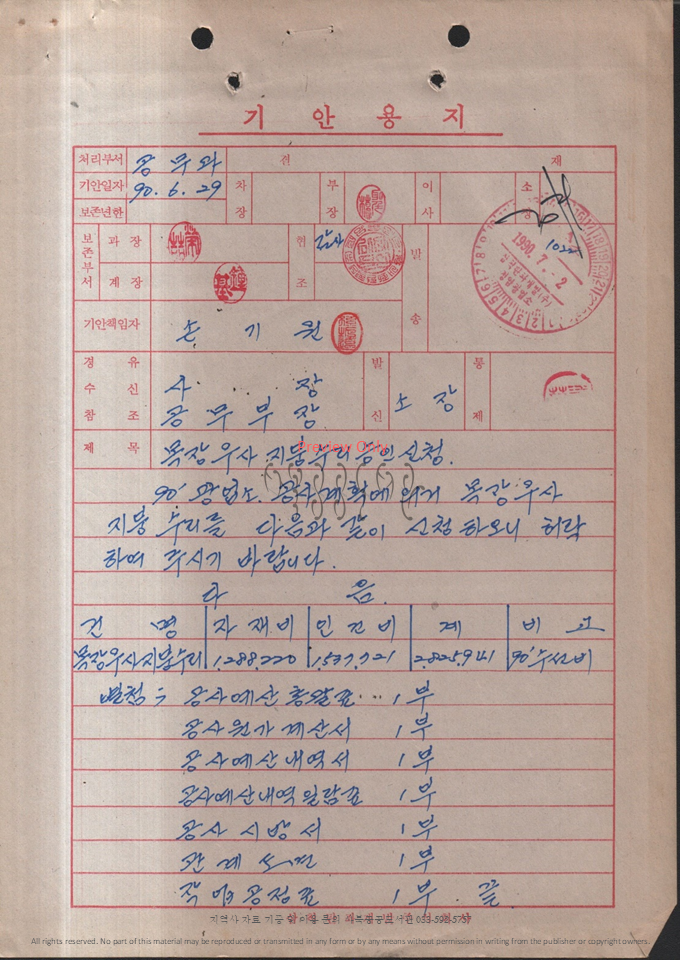 기 안 용 지
처리부서 공 무 과 결 재
기안일자 90. 6. 29 차 장 부 장 이 사 소 장
보존년한
보존부서 과 장 협 조 발 송
계 장
1990. 7. - 2
기안책임자 손 기 원
경 유 수 신 참 조 사 장 발 신 소 장 통 제
공 무 부 장
제 목 목장우사 지붕수리승인신청.
Preview Only
90' 광업소 공사계획에 의거 목장우사
지붕 수리를 다음과 같이 신청하오니 허락
하여 주시기 바랍니다.
다 음.
건 명 자재비 인건비 계 비 고
목장우사지붕수리 1,288,220 1,537,721 2,825,941 90'수선비
별첨 : 공사예산 총괄표 ... 1 부
공사원가계산서 1 부
공사예산내역서 1 부
공사예산내역일람표 1 부
공사 시방서 1 부
관계 도면 1 부
작업공정표 1 부. 끝.
All rights reserved. No part of this material may be reproduced or transmitted in any form or by any means without permission in writing from the publisher or copyright owners.